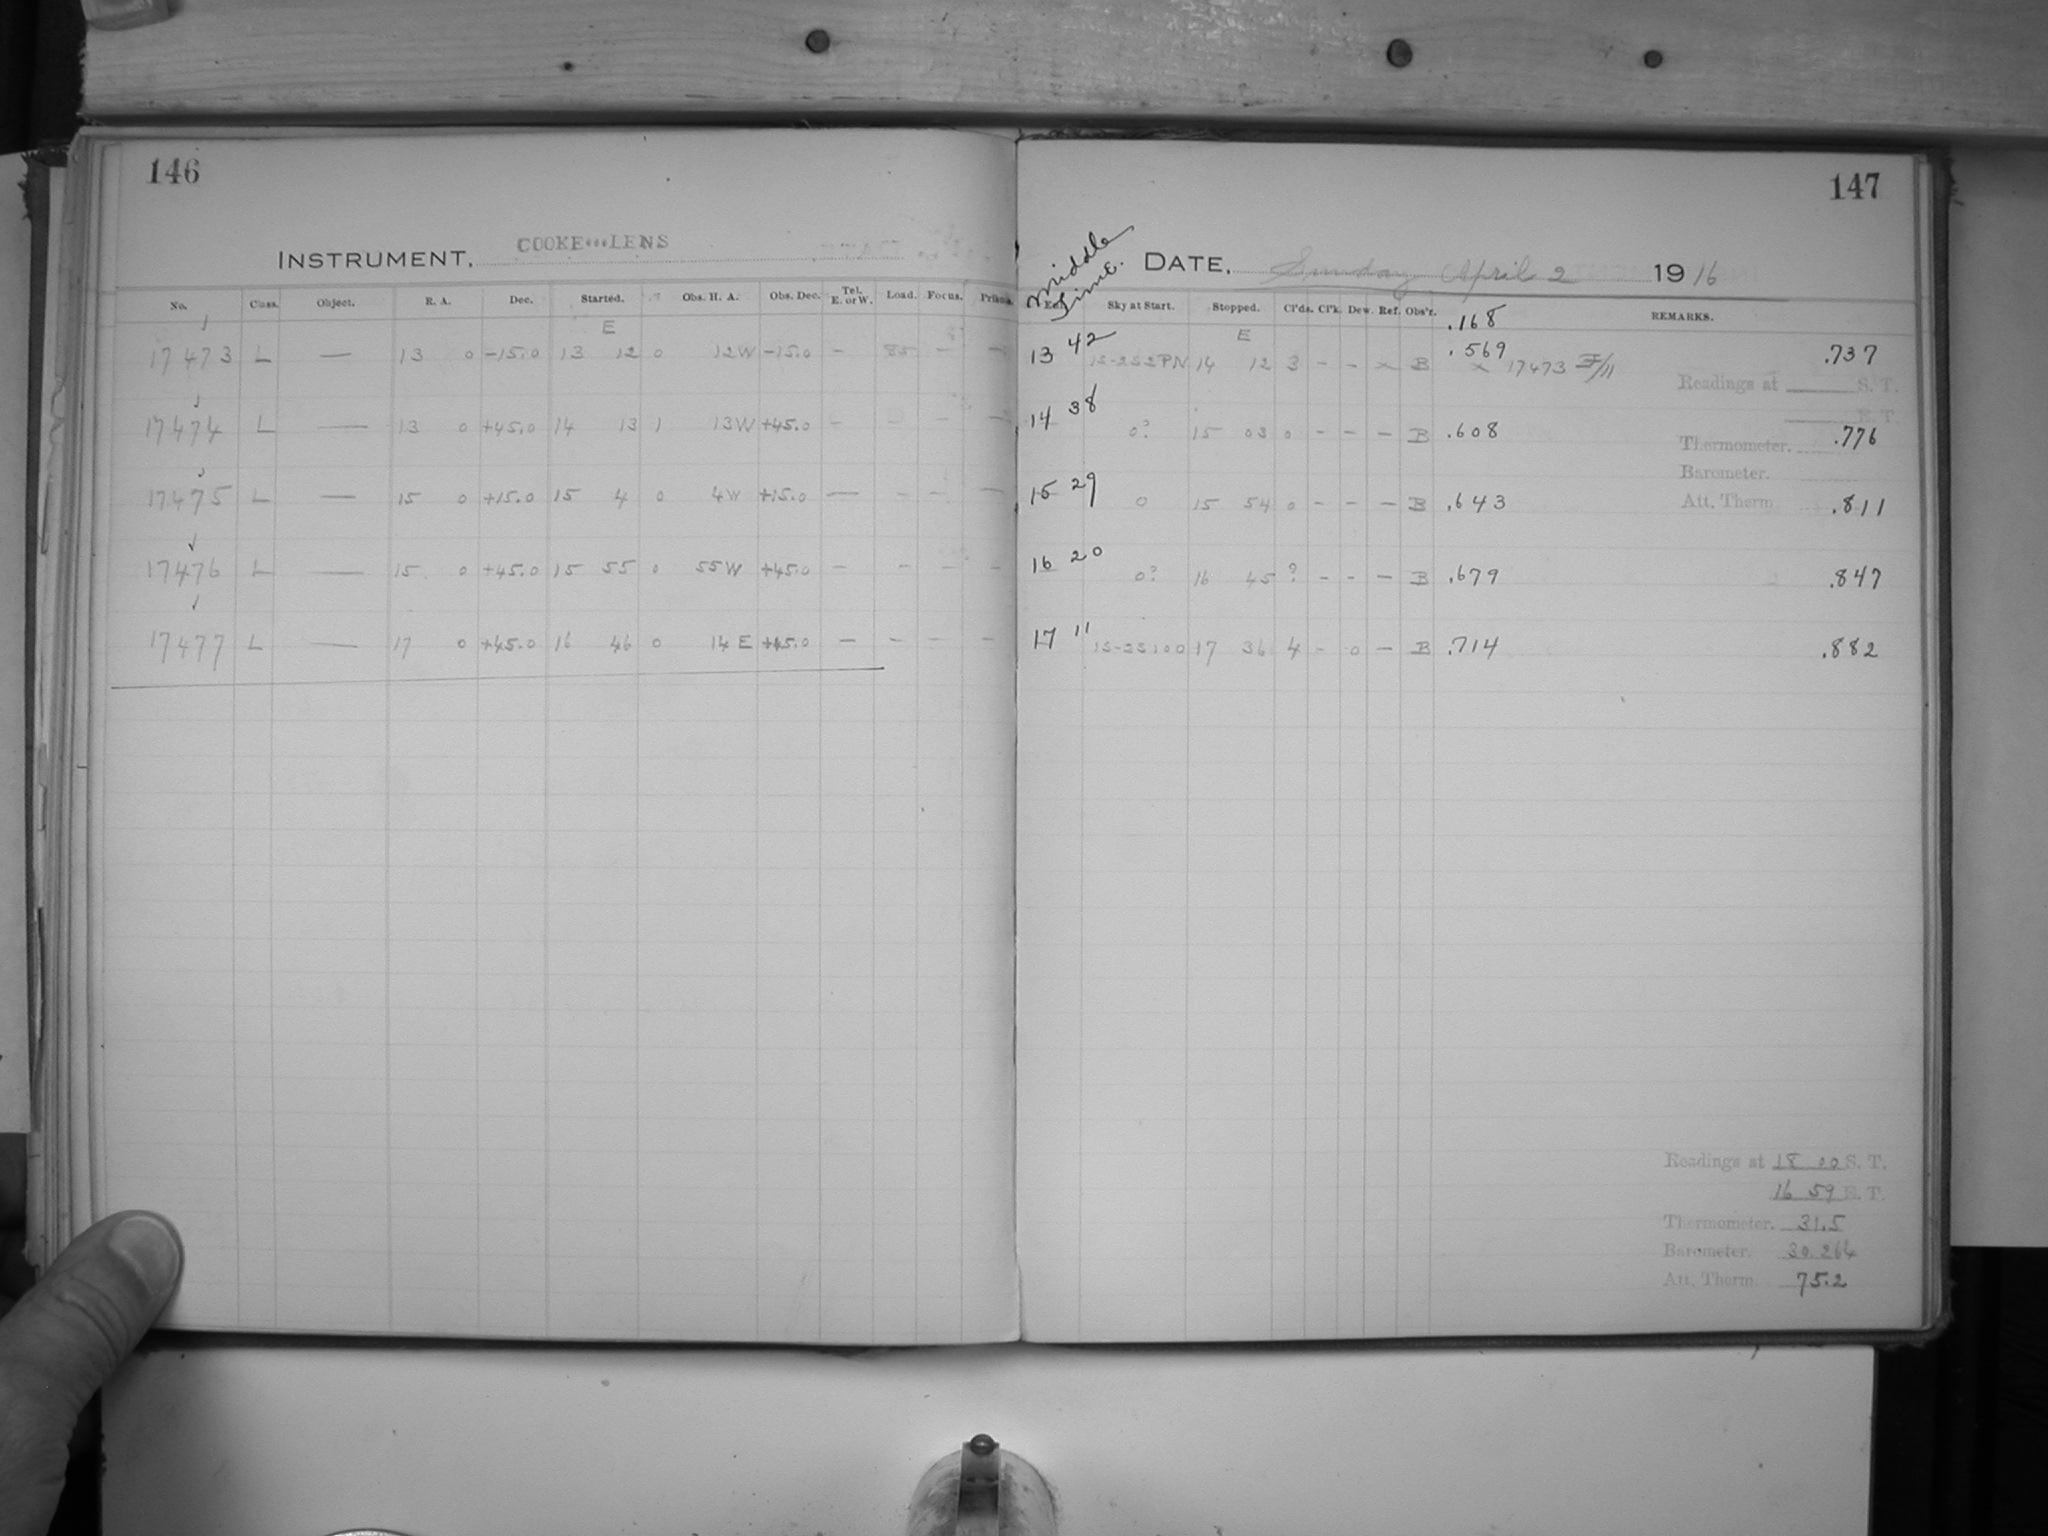 146
INSTRUMENT. COOKE LENS
No. Class. Object. R. A. Dec. Started. Obs. H. A. Obs. Dec. Tel. E. or W. Load. Focus. Prism.
E
17473 L — 13 0 -15.0 13 12 0 12W -15.0 - 85 - -
17474 L — 13 0 +45.0 14 13 1 13W +45.0 - - - -
17475 L — 15 0 +15.0 15 4 0 4W +15.0 — - - -
17476 L — 15 0 +45.0 15 55 0 55W +45.0 - - - -
17477 L — 17 0 +45.0 16 46 0 14 E +45.0 - - - -
147
Middle Time.
DATE. Sunday April 2 1916
Sky at Start. Stopped. Cl'ds. Cl'k. Dew. Ref. Obs'r. REMARKS.
.168
E
13 42 1S-2S2PN 14 12 3 - - x B .569 .737
x 17473 F/11
Readings at S. T.
E. T.
14 38 0? 15 03 0 - - - B .608 .776
Thermometer.
Barometer.
Att. Therm.
15 29 0 15 54 0 - - - B .643 .811
16 20 0? 16 45 ? - - - B .679 .847
17 11 1S-2S100 17 36 4 - 0 - B .714 .882
Readings at 18 00 S. T.
16 59 E. T.
Thermometer. 31.5
Barometer. 30.264
Att. Therm. 75.2